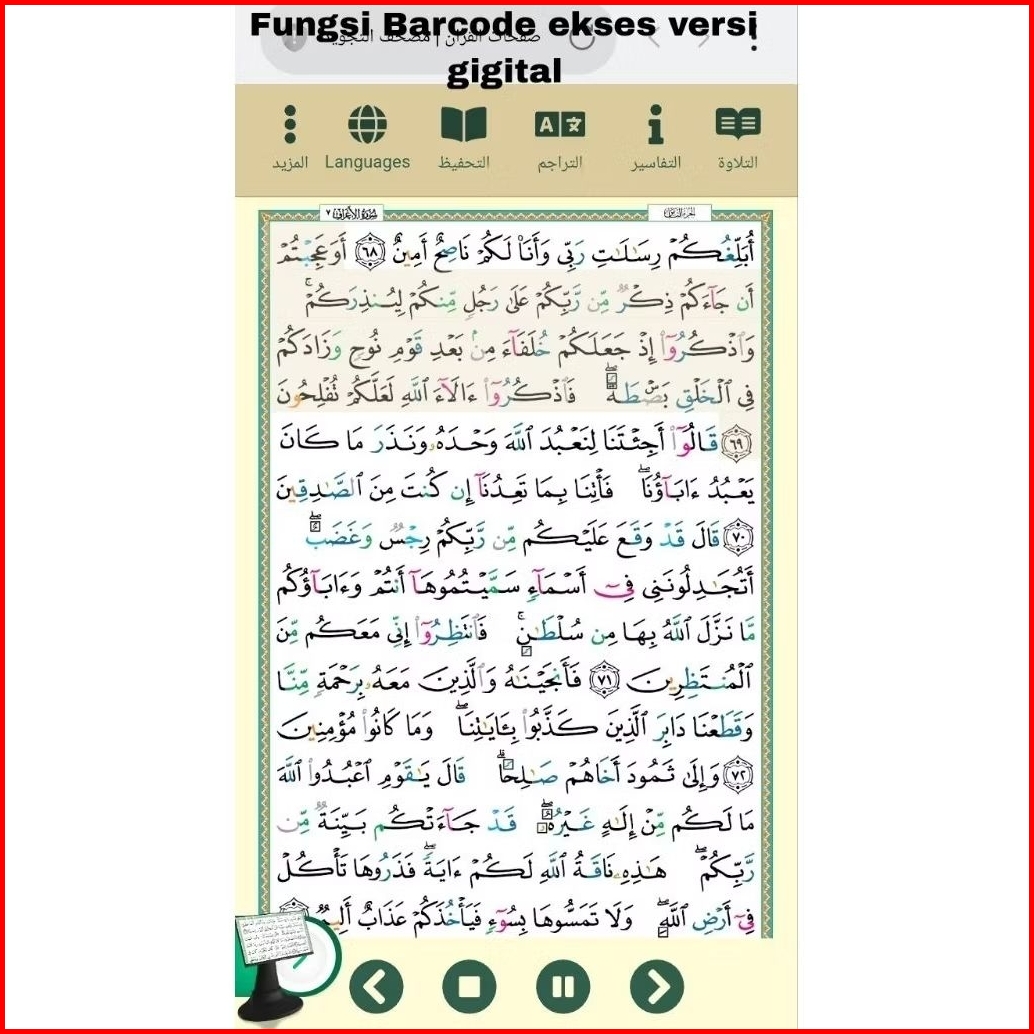 Fungsi Barcode ekses versi
صفحات القرآن | مصحف التجويد
gigital
التلاوة
التفاسير
التراجم
التحفيظ
Languages
المزيد
سُورَةُ الأَعْرَافِ ٧
أُبَلِّغُكُمْ رِسَـٰلَـٰتِ رَبِّى وَأَنَا۠ لَكُمْ نَاصِحٌ أَمِينٌ ٦٨ أَوَعَجِبْتُمْ
أَن جَآءَكُمْ ذِكْرٌ مِّن رَّبِّكُمْ عَلَىٰ رَجُلٍ مِّنكُمْ لِيُنذِرَكُمْ ۚ
وَٱذْكُرُوٓا۟ إِذْ جَعَلَكُمْ خُلَفَآءَ مِنۢ بَعْدِ قَوْمِ نُوحٍ وَزَادَكُمْ
فِى ٱلْخَلْقِ بَصْۜطَةً ۖ فَٱذْكُرُوٓا۟ ءَالَآءَ ٱللَّهِ لَعَلَّكُمْ تُفْلِحُونَ
٦٩ قَالُوٓا۟ أَجِئْتَنَا لِنَعْبُدَ ٱللَّهَ وَحْدَهُۥ وَنَذَرَ مَا كَانَ
يَعْبُدُ ءَابَآؤُنَا ۖ فَأْتِنَا بِمَا تَعِدُنَآ إِن كُنتَ مِنَ ٱلصَّـٰدِقِينَ
٧٠ قَالَ قَدْ وَقَعَ عَلَيْكُم مِّن رَّبِّكُمْ رِجْسٌ وَغَضَبٌ ۖ
أَتُجَـٰدِلُونَنِى فِىٓ أَسْمَآءٍ سَمَّيْتُمُوهَآ أَنتُمْ وَءَابَآؤُكُم
مَّا نَزَّلَ ٱللَّهُ بِهَا مِن سُلْطَـٰنٍ ۚ فَٱنتَظِرُوٓا۟ إِنِّى مَعَكُم مِّنَ
ٱلْمُنتَظِرِينَ ٧١ فَأَنجَيْنَـٰهُ وَٱلَّذِينَ مَعَهُۥ بِرَحْمَةٍ مِّنَّا
وَقَطَعْنَا دَابِرَ ٱلَّذِينَ كَذَّبُوا۟ بِـَٔايَـٰتِنَا ۖ وَمَا كَانُوا۟ مُؤْمِنِينَ
٧٢ وَإِلَىٰ ثَمُودَ أَخَاهُمْ صَـٰلِحًا ۗ قَالَ يَـٰقَوْمِ ٱعْبُدُوا۟ ٱللَّهَ
مَا لَكُم مِّنْ إِلَـٰهٍ غَيْرُهُۥ ۖ قَدْ جَآءَتْكُم بَيِّنَةٌ مِّن
رَّبِّكُمْ ۖ هَـٰذِهِۦ نَاقَةُ ٱللَّهِ لَكُمْ ءَايَةً ۖ فَذَرُوهَا تَأْكُلْ
فِىٓ أَرْضِ ٱللَّهِ ۖ وَلَا تَمَسُّوهَا بِسُوٓءٍ فَيَأْخُذَكُمْ عَذَابٌ أَلِيمٌ